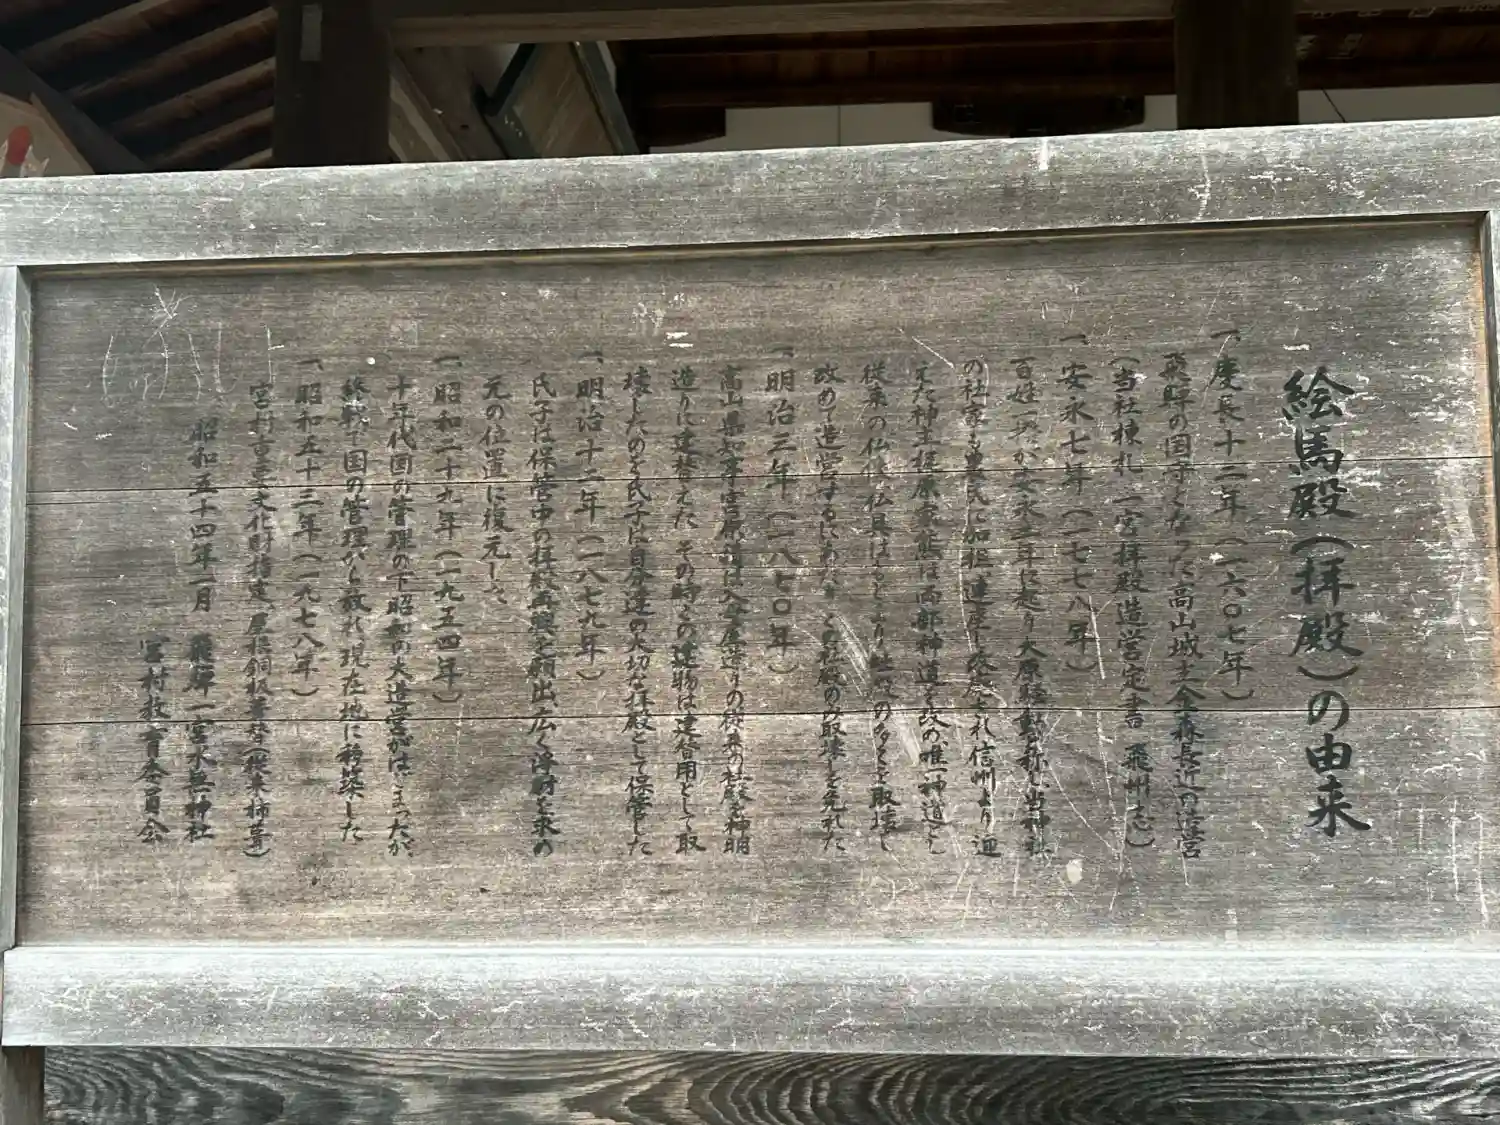 絵馬殿(拝殿)の由来
一、慶長十二年(一六〇七年)
飛騨の国守となった高山城主金森長近の造営
(当社棟札、一宮拝殿造営定書 飛州志)
一、安永七年(一七七八年)
百姓一揆が安永二年に起り大原騒動と称し当神社
の社家も農民に加担連座し処刑され信州より迎
えた神主梶原家熊は両部神道を改め唯一神道とし
従来の仏像仏具はもとより社殿の多くを取壊し
改めて造営するにあたりこの社殿のみ取壊しを免れた
一、明治三年(一八七〇年)
高山県知事宮原積は入母屋造りの従来の社殿を神明
造りに建替えた その時この建物は建替用として取
壊したのを氏子は自分達の大切な拝殿として保管した
一、明治十二年(一八七九年)
氏子は保管中の拝殿再興を願出、広く浄財を求め
元の位置に復元した
一、昭和二十九年(一九五四年)
十年代国の管理の下昭和の大造営がはじまったが、
終戦で国の管理から放れ現在地に移築した
一、昭和五十三年(一九七八年)
宮村重要文化財指定、屋根銅板葺替(従来柿葺)
昭和五十四年一月 飛騨一宮水無神社
宮村教育委員会